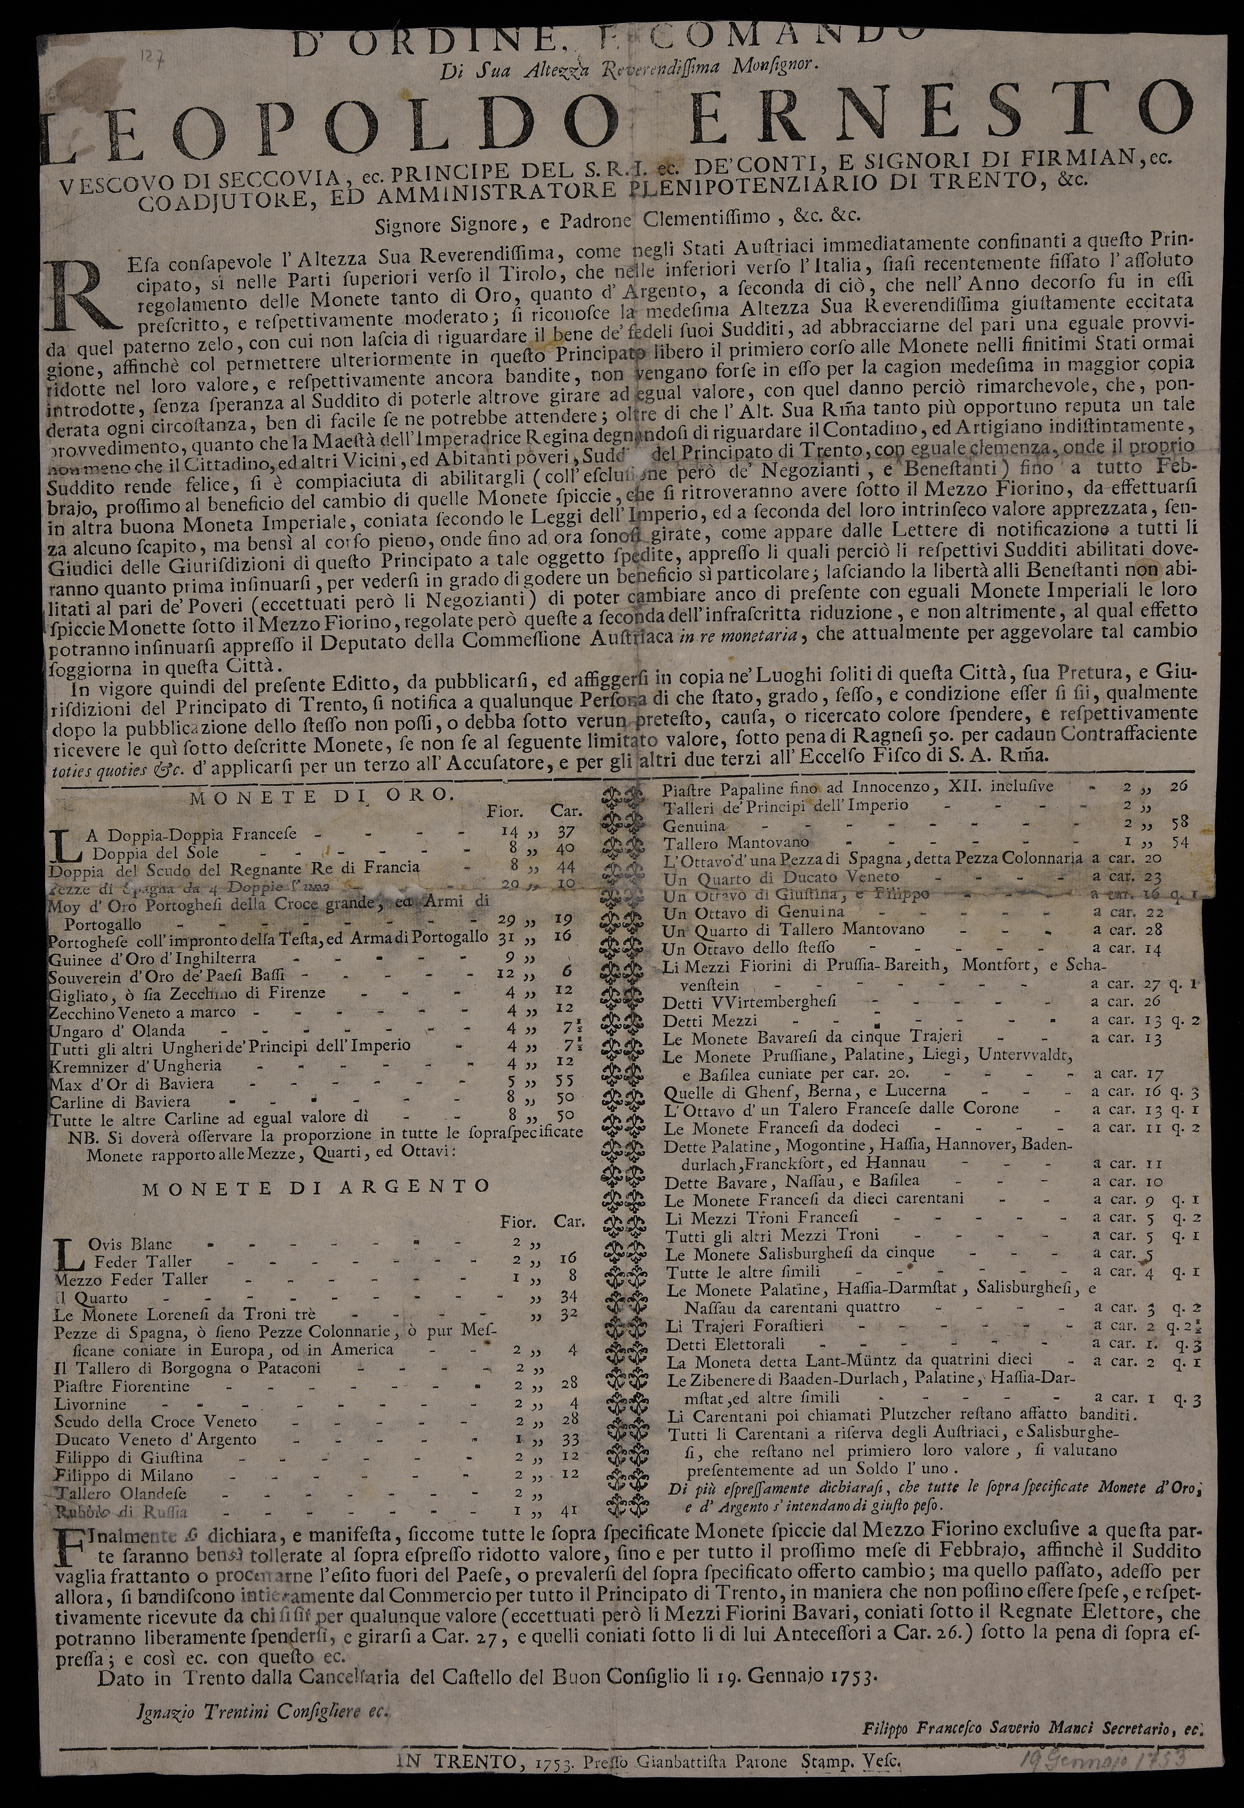 127
D'ORDINE, E COMANDO
Di Sua Altezza Reverendiſſima Monſignor.
LEOPOLDO ERNESTO
VESCOVO DI SECCOVIA, ec. PRINCIPE DEL S.R.I. ec. DE'CONTI, E SIGNORI DI FIRMIAN, ec.
COADJUTORE, ED AMMINISTRATORE PLENIPOTENZIARIO DI TRENTO, &c.
Signore Signore, e Padrone Clementiſſimo, &c. &c.
REſa conſapevole l'Altezza Sua Reverendiſſima, come negli Stati Auſtriaci immediatamente confinanti a queſto Prin-
cipato, sì nelle Parti ſuperiori verſo il Tirolo, che nelle inferiori verſo l'Italia, ſiaſi recentemente fiſſato l'aſſoluto
regolamento delle Monete tanto di Oro, quanto d'Argento, a ſeconda di ciò, che nell'Anno decorſo fu in eſſi
preſcritto, e reſpettivamente moderato; ſi riconoſce la medeſima Altezza Sua Reverendiſſima giuſtamente eccitata
da quel paterno zelo, con cui non laſcia di riguardare il bene de' fedeli ſuoi Sudditi, ad abbracciarne del pari una eguale provvi-
gione, affinchè col permettere ulteriormente in queſto Principato libero il primiero corſo alle Monete nelli finitimi Stati ormai
ridotte nel loro valore, e reſpettivamente ancora bandite, non vengano forſe in eſſo per la cagion medeſima in maggior copia
introdotte, ſenza ſperanza al Suddito di poterle altrove girare ad egual valore, con quel danno perciò rimarchevole, che, pon-
derata ogni circoſtanza, ben di facile ſe ne potrebbe attendere; oltre di che l'Alt. Sua Rm̃a tanto più opportuno reputa un tale
provvedimento, quanto che la Maeſtà dell'Imperadrice Regina degnandoſi di riguardare il Contadino, ed Artigiano indiſtintamente,
non meno che il Cittadino, ed altri Vicini, ed Abitanti poveri, Sudd del Principato di Trento, con eguale clemenza, onde il proprio
Suddito rende felice, ſi è compiaciuta di abilitargli (coll'eſcluſione però de' Negozianti, e Beneſtanti) fino a tutto Feb-
brajo, proſſimo al beneficio del cambio di quelle Monete ſpiccie, che ſi ritroveranno avere ſotto il Mezzo Fiorino, da effettuarſi
in altra buona Moneta Imperiale, coniata ſecondo le Leggi dell'Imperio, ed a ſeconda del loro intrinſeco valore apprezzata, ſen-
za alcuno ſcapito, ma bensì al corſo pieno, onde fino ad ora ſonoſi girate, come appare dalle Lettere di notificazione a tutti li
Giudici delle Giuriſdizioni di queſto Principato a tale oggetto ſpedite, appreſſo li quali perciò li reſpettivi Sudditi abilitati dove-
ranno quanto prima inſinuarſi, per vederſi in grado di godere un beneficio sì particolare; laſciando la libertà alli Beneſtanti non abi-
litati al pari de' Poveri (eccettuati però li Negozianti) di poter cambiare anco di preſente con eguali Monete Imperiali le loro
ſpiccie Monette ſotto il Mezzo Fiorino, regolate però queſte a ſeconda dell'infraſcritta riduzione, e non altrimente, al qual effetto
potranno inſinuarſi appreſſo il Deputato della Commeſſione Auſtriaca in re monetaria, che attualmente per aggevolare tal cambio
ſoggiorna in queſta Città.
In vigore quindi del preſente Editto, da pubblicarſi, ed affiggerſi in copia ne' Luoghi ſoliti di queſta Città, ſua Pretura, e Giu-
riſdizioni del Principato di Trento, ſi notifica a qualunque Perſona di che ſtato, grado, ſeſſo, e condizione eſſer ſi ſii, qualmente
dopo la pubblicazione dello ſteſſo non poſſi, o debba ſotto verun preteſto, cauſa, o ricercato colore ſpendere, e reſpettivamente
ricevere le quì ſotto deſcritte Monete, ſe non ſe al ſeguente limitato valore, ſotto pena di Ragneſi 50. per cadaun Contraffaciente
toties quoties &c. d'applicarſi per un terzo all'Accuſatore, e per gli altri due terzi all'Eccelſo Fiſco di S. A. Rm̃a.
MONETE DI ORO.
Fior. Car.
LA Doppia-Doppia Franceſe - - - - 14 ,, 37
Doppia del Sole - - - - - 8 ,, 40
Doppia del Scudo del Regnante Re di Francia - 8 ,, 44
Pezze di Spagna da 4 Doppie l'una - - - 20 ,, 10
Moy d'Oro Portogheſi della Croce grande, ed Armi di
Portogallo - - - - - - - 29 ,, 19
Portogheſe coll'impronto della Teſta, ed Arma di Portogallo 31 ,, 16
Guinee d'Oro d'Inghilterra - - - - - 9 ,,
Souverein d'Oro de' Paeſi Baſſi - - - - - 12 ,, 6
Gigliato, ò ſia Zecchino di Firenze - - - 4 ,, 12
Zecchino Veneto a marco - - - - - - 4 ,, 12
Ungaro d'Olanda - - - - - - - 4 ,, 7½
Tutti gli altri Ungheri de' Principi dell'Imperio - 4 ,, 7½
Kremnizer d'Ungheria - - - - - - 4 ,, 12
Max d'Or di Baviera - - - - - - 5 ,, 55
Carline di Baviera - - - - - - 8 ,, 50
Tutte le altre Carline ad egual valore dì - - 8 ,, 50
NB. Si doverà oſſervare la proporzione in tutte le ſopraſpecificate
Monete rapporto alle Mezze, Quarti, ed Ottavi:
MONETE DI ARGENTO
Fior. Car.
LOvis Blanc - - - - - - 2 ,,
Feder Taller - - - - - - 2 ,, 16
Mezzo Feder Taller - - - - - - 1 ,, 8
Il Quarto - - - - - - - - ,, 34
Le Monete Loreneſi da Troni trè - - - - ,, 32
Pezze di Spagna, ò ſieno Pezze Colonnarie, ò pur Meſ-
ſicane coniate in Europa, od in America - - 2 ,, 4
Il Tallero di Borgogna o Pataconi - - - - 2 ,,
Piaſtre Fiorentine - - - - - - - 2 ,, 28
Livornine - - - - - - - - 2 ,, 4
Scudo della Croce Veneto - - - - - 2 ,, 28
Ducato Veneto d'Argento - - - - - 1 ,, 33
Filippo di Giuſtina - - - - - - 2 ,, 12
Filippo di Milano - - - - - - 2 ,, 12
Tallero Olandeſe - - - - - - 2 ,,
Rubblo di Ruſſia - - - - - - 1 ,, 41
Piaſtre Papaline fino ad Innocenzo, XII. incluſive - 2 ,, 26
Talleri de' Principi dell'Imperio - - - - 2 ,,
Genuina - - - - - - - - 2 ,, 58
Tallero Mantovano - - - - - - 1 ,, 54
L'Ottavo d'una Pezza di Spagna, detta Pezza Colonnaria a car. 20
Un Quarto di Ducato Veneto - - - - a car. 23
Un Ottavo di Giuſtina, e Filippo - - - a car. 16 q. 1
Un Ottavo di Genuina - - - - - a car. 22
Un Quarto di Tallero Mantovano - - - a car. 28
Un Ottavo dello ſteſſo - - - - - a car. 14
Li Mezzi Fiorini di Pruſſia-Bareith, Montfort, e Scha-
venſtein - - - - - - - a car. 27 q. 1
Detti VVirtembergheſi - - - - - a car. 26
Detti Mezzi - - - - - - - a car. 13 q. 2
Le Monete Bavareſi da cinque Trajeri - - a car. 13
Le Monete Pruſſiane, Palatine, Liegi, Untervvaldt,
e Baſilea cuniate per car. 20. - - - - a car. 17
Quelle di Ghenf, Berna, e Lucerna - - - a car. 16 q. 3
L'Ottavo d'un Talero Franceſe dalle Corone - a car. 13 q. 1
Le Monete Franceſi da dodeci - - - - a car. 11 q. 2
Dette Palatine, Mogontine, Haſſia, Hannover, Baden-
durlach, Franckfort, ed Hannau - - - a car. 11
Dette Bavare, Naſſau, e Baſilea - - - a car. 10
Le Monete Franceſi da dieci carentani - - a car. 9 q. 1
Li Mezzi Troni Franceſi - - - - - a car. 5 q. 2
Tutti gli altri Mezzi Troni - - - - a car. 5 q. 1
Le Monete Salisburgheſi da cinque - - - a car. 5
Tutte le altre ſimili - - - - - - a car. 4 q. 1
Le Monete Palatine, Haſſia-Darmſtat, Salisburgheſi, e
Naſſau da carentani quattro - - - - a car. 3 q. 2
Li Trajeri Foraſtieri - - - - - - a car. 2 q. 2½
Detti Elettorali - - - - - - a car. 1. q. 3
La Moneta detta Lant-Müntz da quatrini dieci - a car. 2 q. 1
Le Zibenere di Baaden-Durlach, Palatine, Haſſia-Dar-
mſtat, ed altre ſimili - - - - - a car. 1 q. 3
Li Carentani poi chiamati Plutzcher reſtano affatto banditi.
Tutti li Carentani a riſerva degli Auſtriaci, e Salisburghe-
ſi, che reſtano nel primiero loro valore, ſi valutano
preſentemente ad un Soldo l'uno.
Di più eſpreſſamente dichiaraſi, che tutte le ſopra ſpecificate Monete d'Oro,
e d'Argento s'intendano di giuſto peſo.
FInalmente ſi dichiara, e manifeſta, ſiccome tutte le ſopra ſpecificate Monete ſpiccie dal Mezzo Fiorino excluſive a queſta par-
te ſaranno bensì tollerate al ſopra eſpreſſo ridotto valore, ſino e per tutto il proſſimo meſe di Febbrajo, affinchè il Suddito
vaglia frattanto o procurarne l'eſito fuori del Paeſe, o prevalerſi del ſopra ſpecificato offerto cambio; ma quello paſſato, adeſſo per
allora, ſi bandiſcono intieramente dal Commercio per tutto il Principato di Trento, in maniera che non poſſino eſſere ſpeſe, e reſpet-
tivamente ricevute da chi ſi ſii per qualunque valore (eccettuati però li Mezzi Fiorini Bavari, coniati ſotto il Regnate Elettore, che
potranno liberamente ſpenderſi, e girarſi a Car. 27, e quelli coniati ſotto li di lui Anteceſſori a Car. 26.) ſotto la pena di ſopra eſ-
preſſa; e così ec. con queſto ec.
Dato in Trento dalla Cancellaria del Caſtello del Buon Conſiglio li 19. Gennajo 1753.
Ignazio Trentini Conſigliere ec.
Filippo Franceſco Saverio Manci Secretario, ec.
IN TRENTO, 1753. Preſſo Gianbattiſta Parone Stamp. Veſc.
19 Gennajo 1753